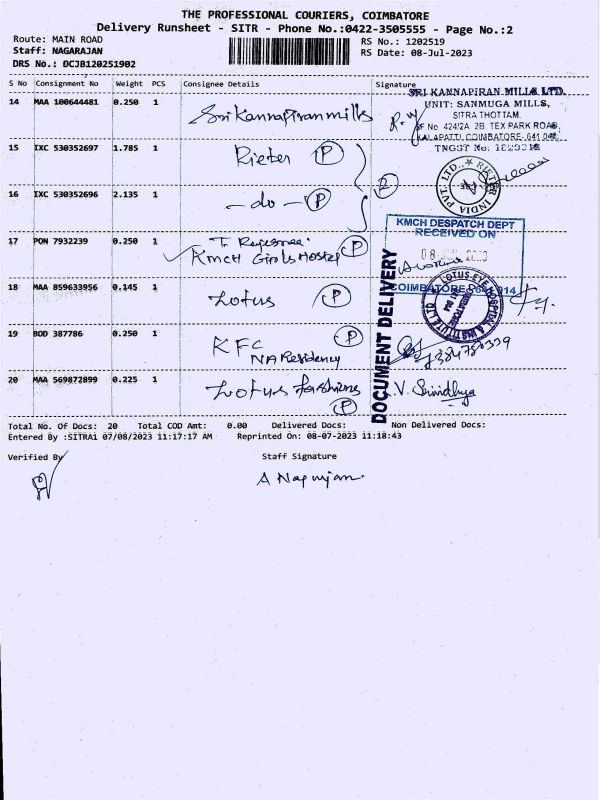 THE PROFESSIONAL COURIERS, COIMBATORE
Delivery Runsheet - SITR - Phone No.:0422-3505555 - Page No.:2
Route: MAIN ROAD
RS No.: 1202519
Staff: NAGARAJAN
RS Date: 08-Jul-2023
DRS No.: DCJB120251902
S No Consignment No Weight PCS Consignee Details Signature
14 MAA 100644481 0.250 1 Sri Kannapiran mills
SRI KANNAPIRAN MILLS LTD.
UNIT: SANMUGA MILLS,
SITRA THOTTAM,
SF No 424/2A 2B TEX PARK ROAD,
KALAPATTI, COIMBATORE-641 048
TNGST No:
15 IXC 530352697 1.785 1 Rieter P
RIETER INDIA PVT. LTD.
16 IXC 530352696 2.135 1 - do - P
2
KMCH DESPATCH DEPT
RECEIVED ON
17 PON 7932239 0.250 1
KMCH Girls Hostel P
COIMBATORE 014
18 MAA 859633956 0.145 1 Lotus P
LOTUS EYE HOSPITAL & INSTITUTE LTD
DOCUMENT DELIVERY
19 BOD 387786 0.250 1 KFC P
NA Residency
20 MAA 569872899 0.225 1 Lotus fashions P
V. Srividhya
Total No. Of Docs: 20 Total COD Amt: 0.00 Delivered Docs: Non Delivered Docs:
Entered By :SITRA1 07/08/2023 11:17:17 AM Reprinted On: 08-07-2023 11:18:43
Verified By Staff Signature
A Nagarajan.